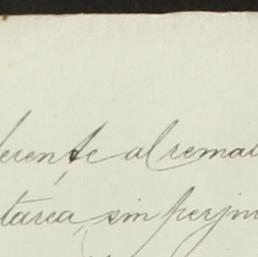 erente al rema
tarea, sin perju